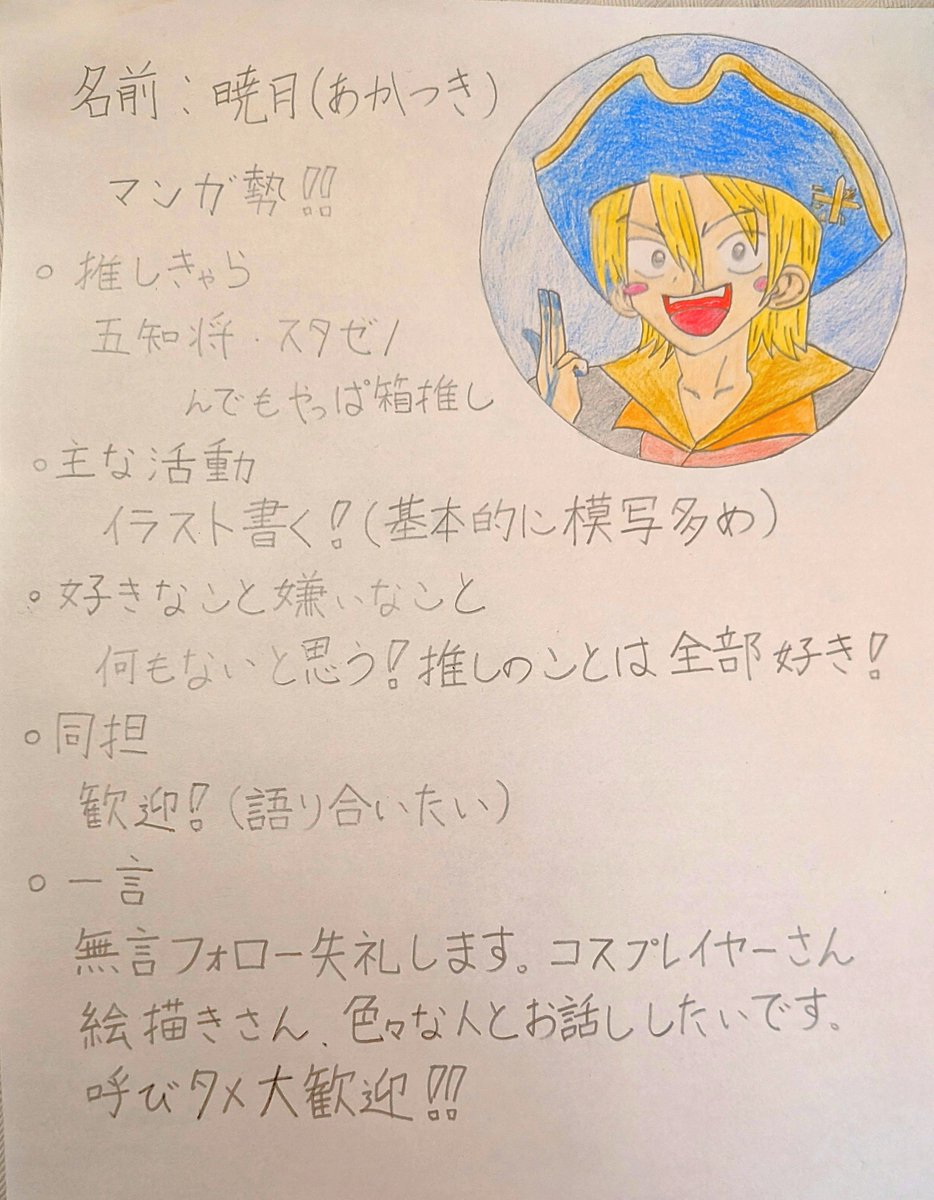 名前：暁月(あかつき)
マンガ勢!!
○推しきゃら
五知将・スタゼノ
んでもやっぱ箱推し
○主な活動
イラスト書く!(基本的に模写多め)
○好きなこと嫌いなこと
何もないと思う!推しのことは全部好き!
○同担
歓迎!(語り合いたい)
○一言
無言フォロー失礼します。コスプレイヤーさん
絵描きさん、色々な人とお話ししたいです。
呼びタメ大歓迎!!